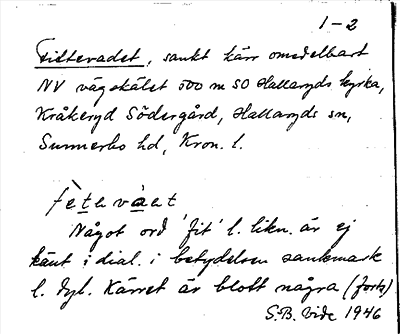 1-2
Fittevadet, sankt kärr omedelbart
NV vägskälet 500 m SO Hallaryds kyrka,
Kråkeryd Södergård, Hallaryds sn,
Sunnerbo hd, Kron. l.
Något ord 'fit' l. likn. är ej
känt i dial. i betydelsen sankmark
l. dyl. Kärret är blott några (forts)
S.B. Vide 1946